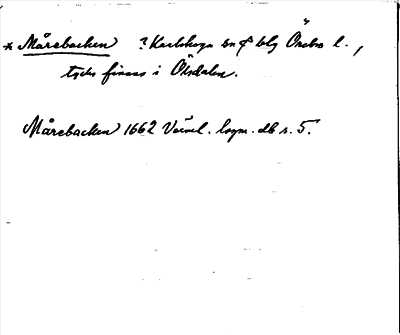 * Mårebacken ? Karlskoga sn o blg Örebro l.,
tycks finnas i Ölsdalen.
Mårebacken 1662 Värml. lagm. db s. 5.